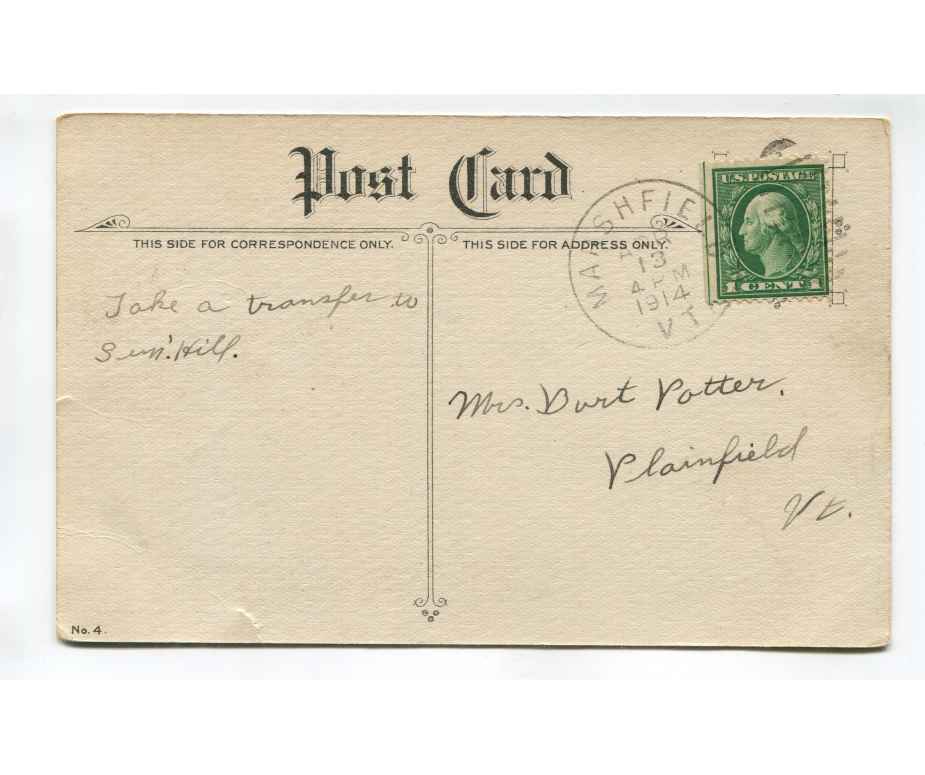 Post Card
THIS SIDE FOR CORRESPONDENCE ONLY.
THIS SIDE FOR ADDRESS ONLY.
U.S. POSTAGE
1 CENT 1
MARSHFIELD
13
4 PM
1914
VT.
Take a transfer to
Hill.
Mrs. Burt Potter,
Plainfield
Vt.
No. 4.